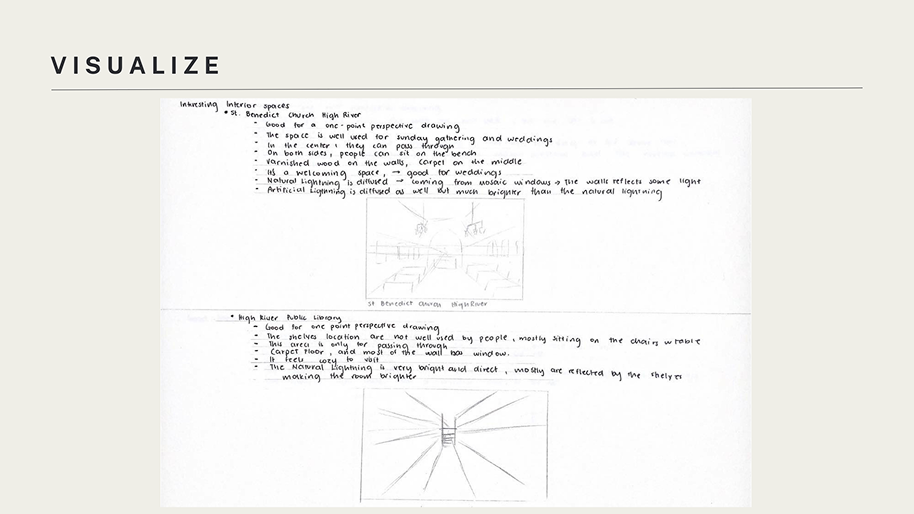 VISUALIZE
Interesting Interior spaces
• St. Benedict Church High River
- Good for a one-point perspective drawing
- The space is well used for sunday gathering and weddings
- In the center, they can pass through
- On both sides, people can sit on the bench
- Varnished wood on the walls, carpet on the middle
- It's a welcoming space, → good for weddings
- Natural Lightning is diffused → coming from mosaic windows → the walls reflects some light
- Artificial Lightning is diffused as well but much brighter than the natural lightning
St Benedict Church High River
• High River Public Library
- Good for one point perspective drawing
- The shelves location are not well used by people, mostly sitting on the chairs w table
- This area is only for passing through
- Carpet Floor, and most of the wall has window.
- It feels cozy to visit
- The Natural Lightning is very bright and direct, mostly are reflected by the shelves
making the room brighter